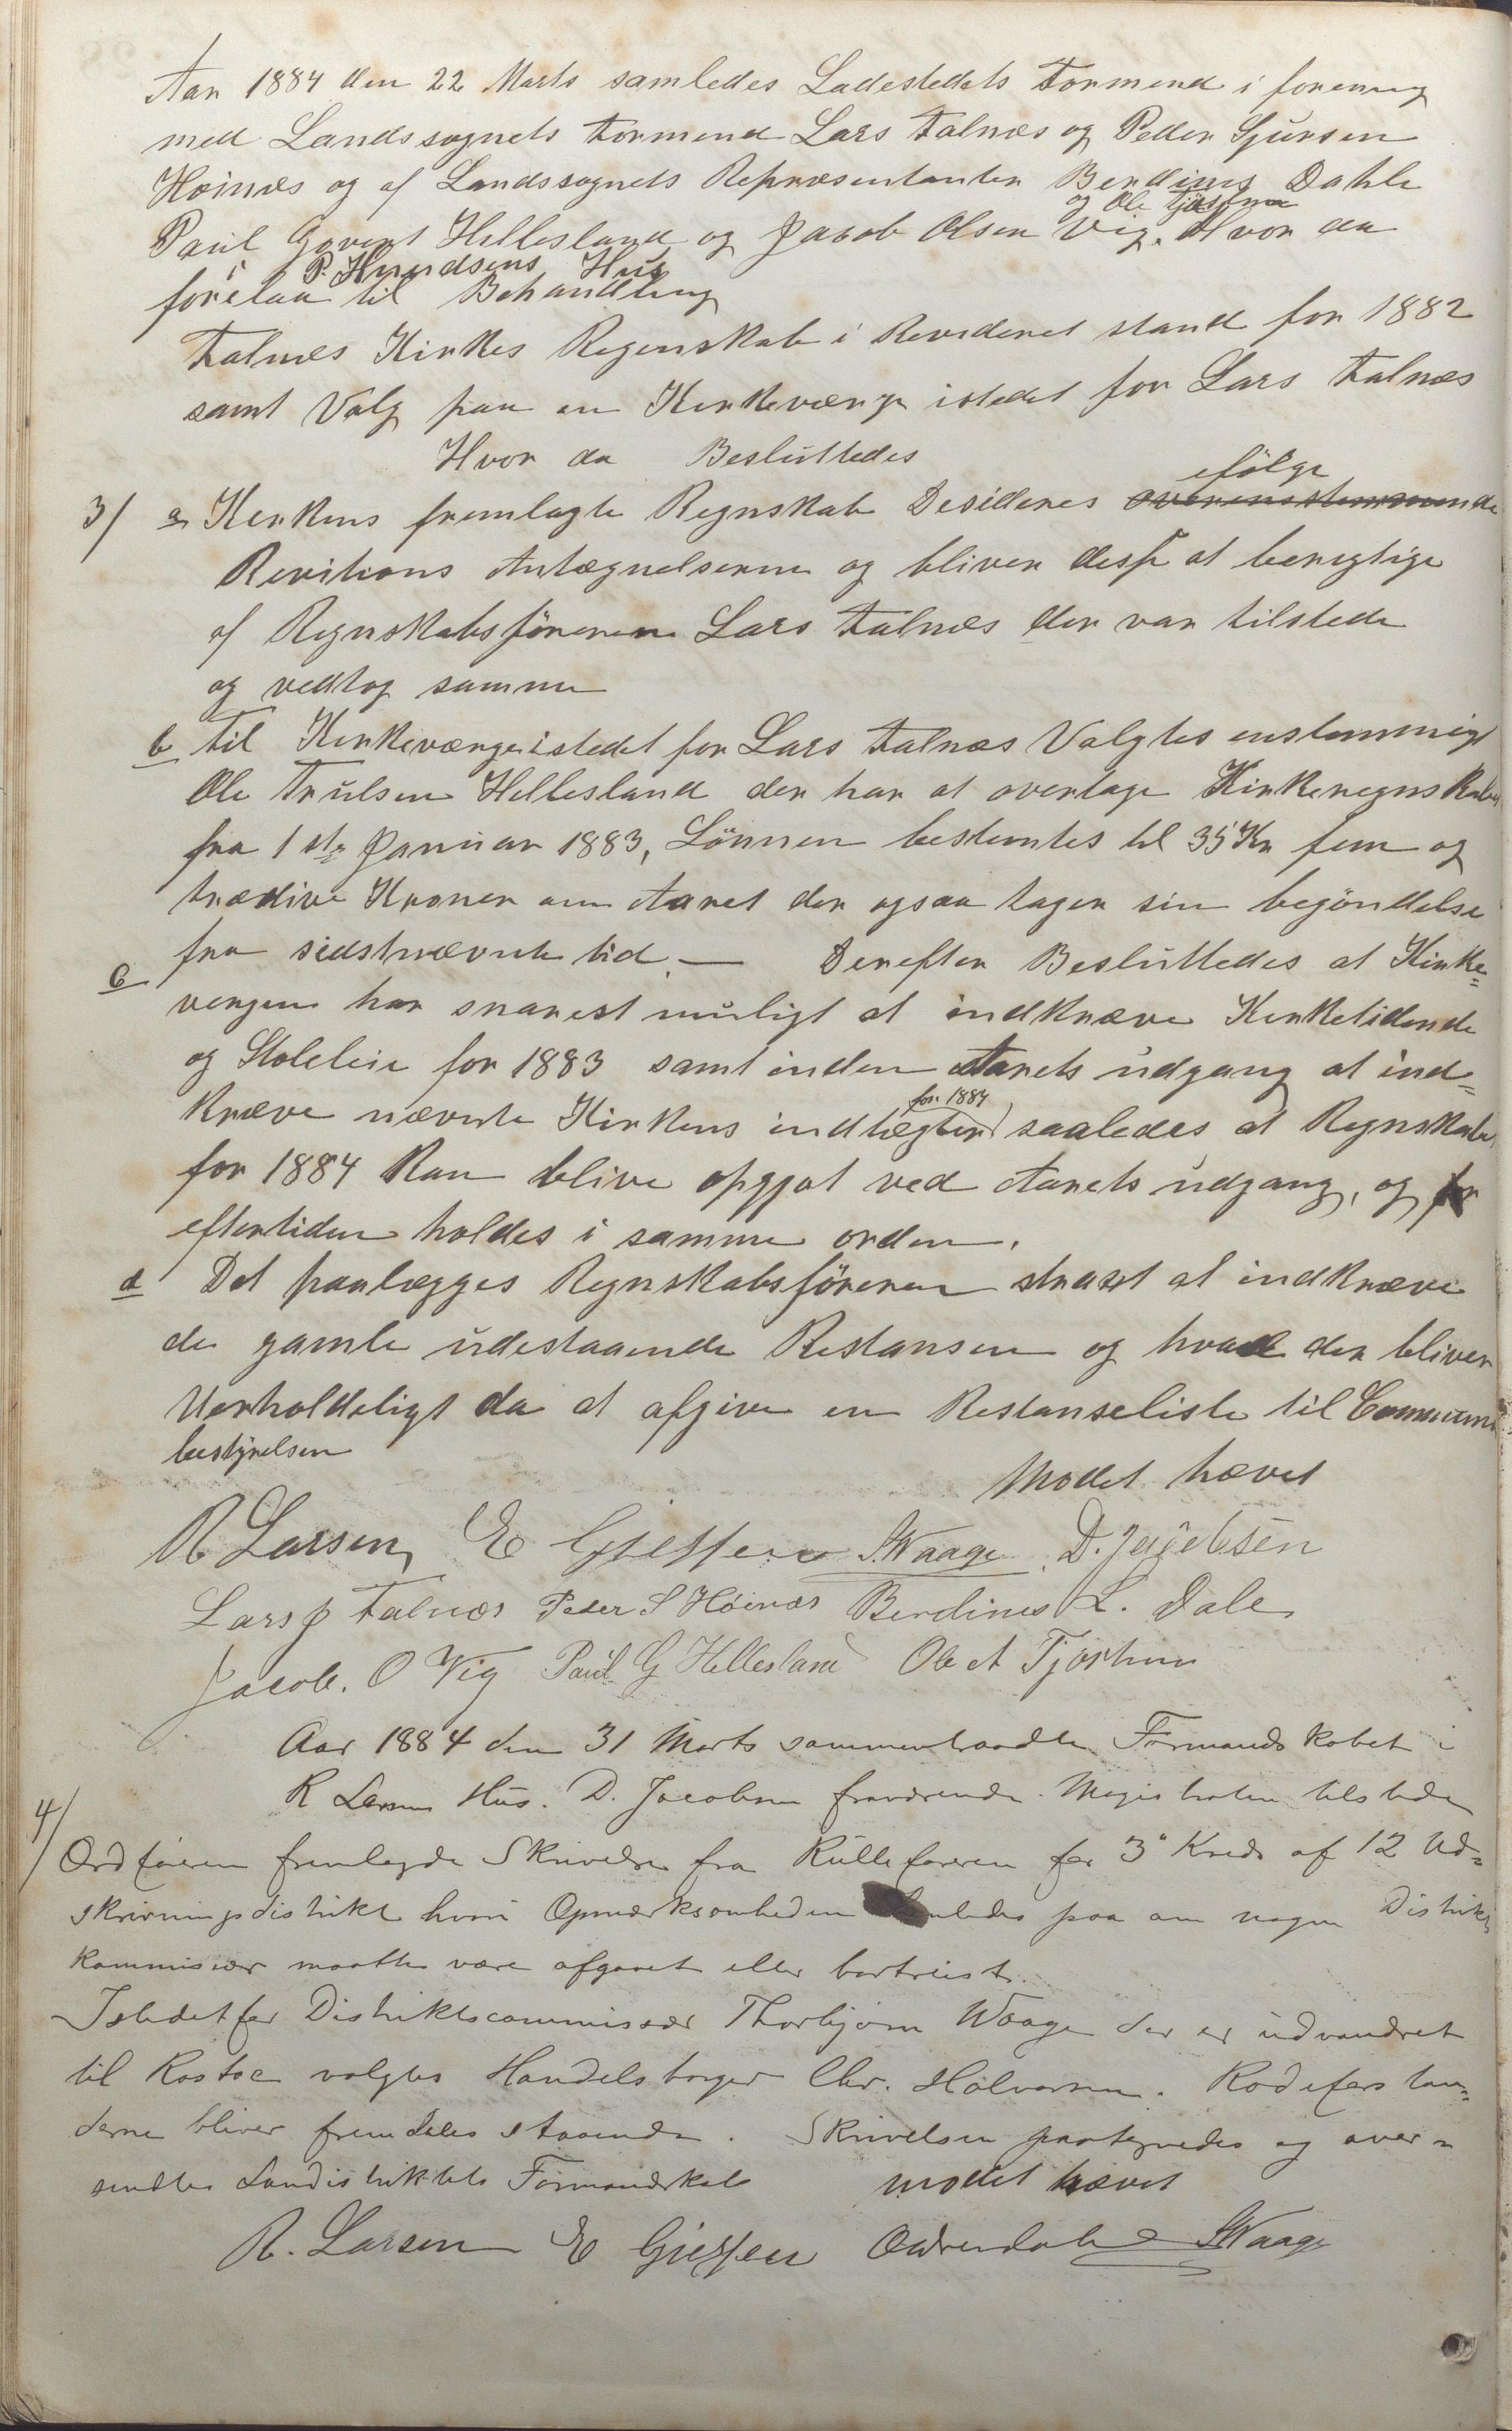 Aar 1884 den 22 Marts samledes Ladestedets Formend i forening
med Landssognets Formend Lars Falnæs og Peder Sjursen
Høinæs og af Landssognets Repræsentanter Berdines Dahle
og Ole Tjøstem
Paul Govert Hellesland og Jacob Olsen Vig. Hvor da
i P. Knudsens Hus
forelaa til Behandling
Falnæs Kirkes Regenskab i Revideret stand for 1882
samt Valg paa en Kirkeværge istedet for Lars Falnæs
Hvor da Besluttedes
efölge
3/ a Kerkens fremlagte Regnskab Desideres overensstemmende
Revitions Antægnelserne og bliver disse at berigtige
af Regnskabsföreren Lars Falnæs der var tilstede
og vedtog samme
b Til Kerkeværge istedet for Lars Falnæs Valgtes enstemmigt
Ole Trulsen Hellesland der har at overtage Kirkeregnskabet
fra 1ste Januar 1883, Lönnen bestemtes til 35 Kr fem og
trædive Kroner om Aaret der ogsaa tager sin begöndelse
fra sidstnævnte tid. — Derefter Besluttedes at Kirke=
c
vergen har snarest muligt at indkræve Kerketiende
og Stoleleie for 1883 samt inden Aarets udgang at ind=
for 1884
kræve nævnte Kirkens indtægter saaledes at Regnskabet
for 1884 kan blive opgjot ved Aarets udgang, og for
eftertiden holdes i samme orden.
d Det paalægges Regnskabsföreren strakst at indkræve
de gamle udestaaende Restanser og hvad der bliver
Uerholdeligt da at afgive en Restanseliste til Communi
bestyrelsen
Mødet hævet
R Larsen E Gjessen S. Waage D. Jacobsen
Lars J Falnæs Peder S Höinæs Berdines L. Dale
Jacob. O Vig Paul G Hellesland Ole A Tjøstem
Aar 1884 den 31 Marts sammentraadte Formandskabet i
R Larsens Hus. D. Jacobsen fraværende. Magistraten tilstede
4/
Ordføreren fremlagde Skrivelse fra Rulleføreren for 3die Kreds af 12 Ud=
skrivningsdistrikt hvori Opmærksomheden henledes paa om nogen Distrikts
kommissær maatte være afgaaet eller bortreist.
Istedetfor Distriktscommissær Thorbjørn Waage der er udvandret
til Rostøe valgtes Handelsborger Chr. Halvorsen. Rodeforstan=
derne bliver fremdeles staaende. Skrivelsen paategnedes og over=
sendtes Landistriktets Formandskab mødet hævet
R. Larsen E Gjessen S Waage